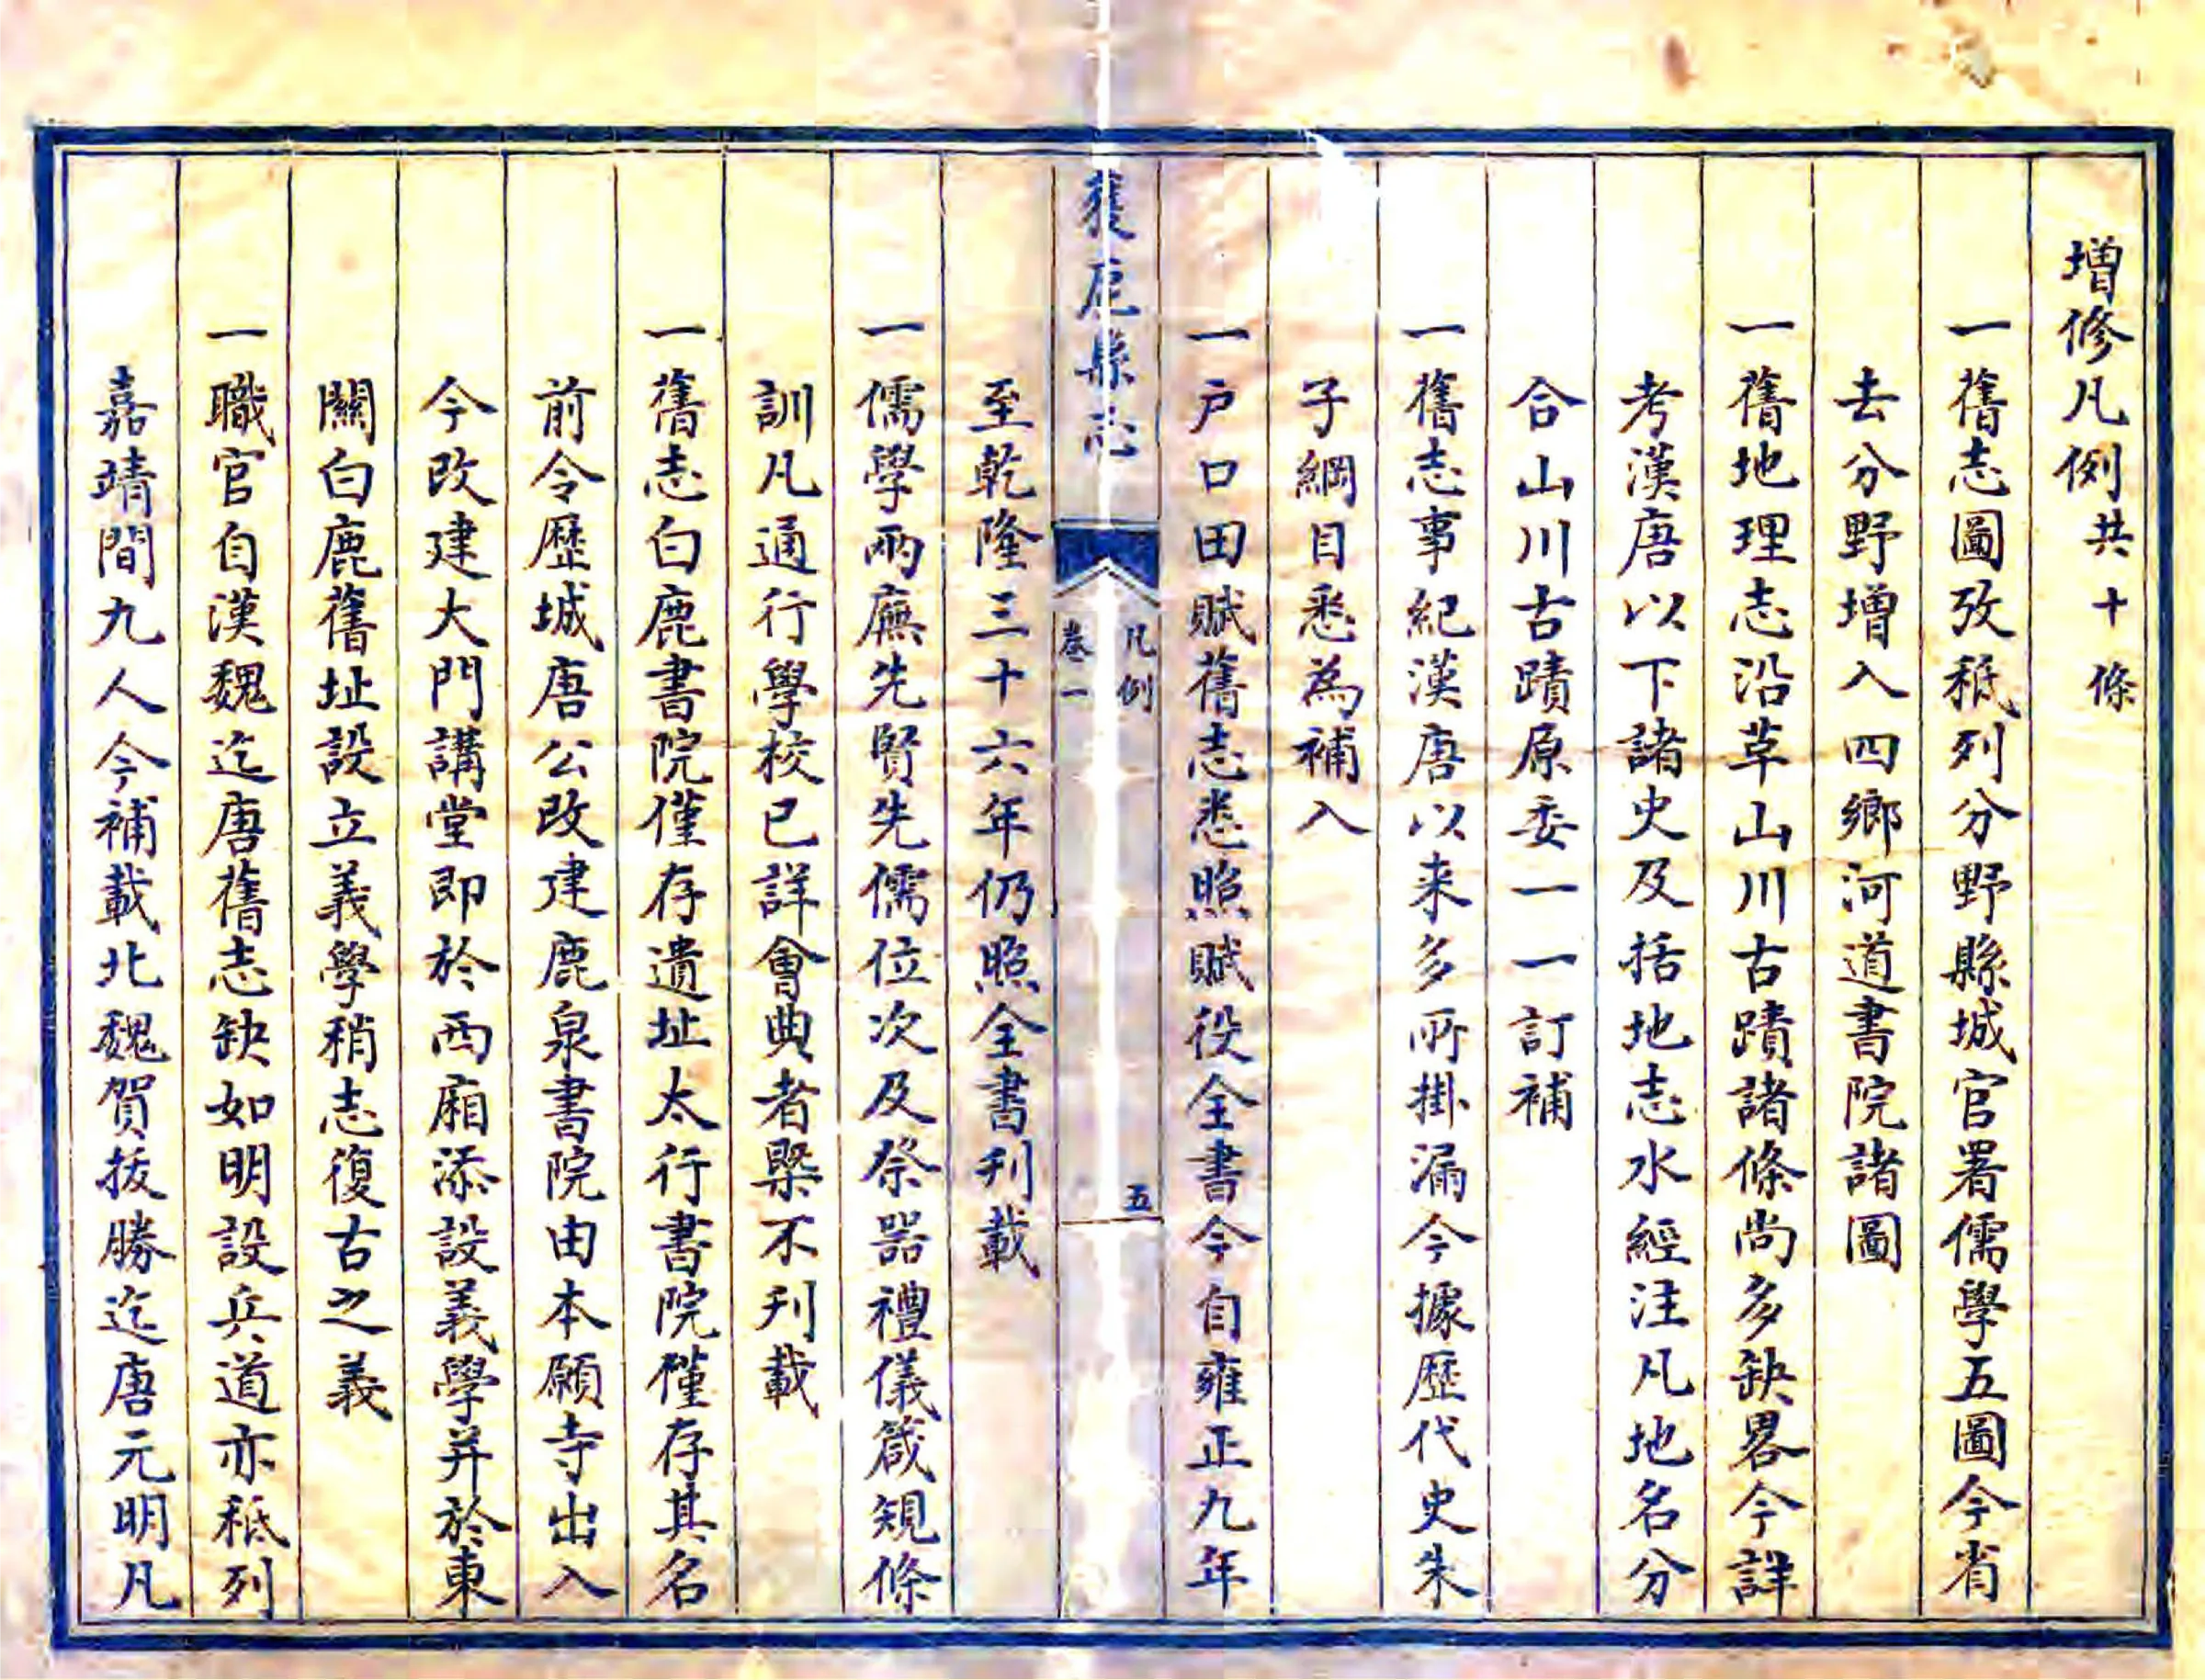 增修凡例共十條
一舊志圖攷秪列分野縣城官署儒學五圖今省
去分野增入四鄉河道書院諸圖
一舊地理志沿草山川古蹟諸條尚多缺畧今詳
考漢唐以下諸史及括地志水經注凡地名分
合山川古蹟原委一一訂補
一舊志事紀漢唐以来多所掛漏今據歷代史朱
子綱目悉為補入
一戶口田賦舊志悉照賦役全書今自雍正九年
獲鹿縣志
凡例
卷一
五
至乾隆三十六年仍照全書刋載
一儒學兩廡先賢先儒位次及祭器禮儀箴規條
訓凡通行學校已詳會典者槩不刋載
一舊志白鹿書院僅存遺址太行書院僅存其名
前令歷城唐公改建鹿泉書院由本願寺出入
今改建大門講堂即於西廂添設義學并於東
關白鹿舊址設立義學稍志復古之義
一職官自漢魏迄唐舊志缺如明設兵道亦秪列
嘉靖間九人今補載北魏賀拔勝迄唐元明凡